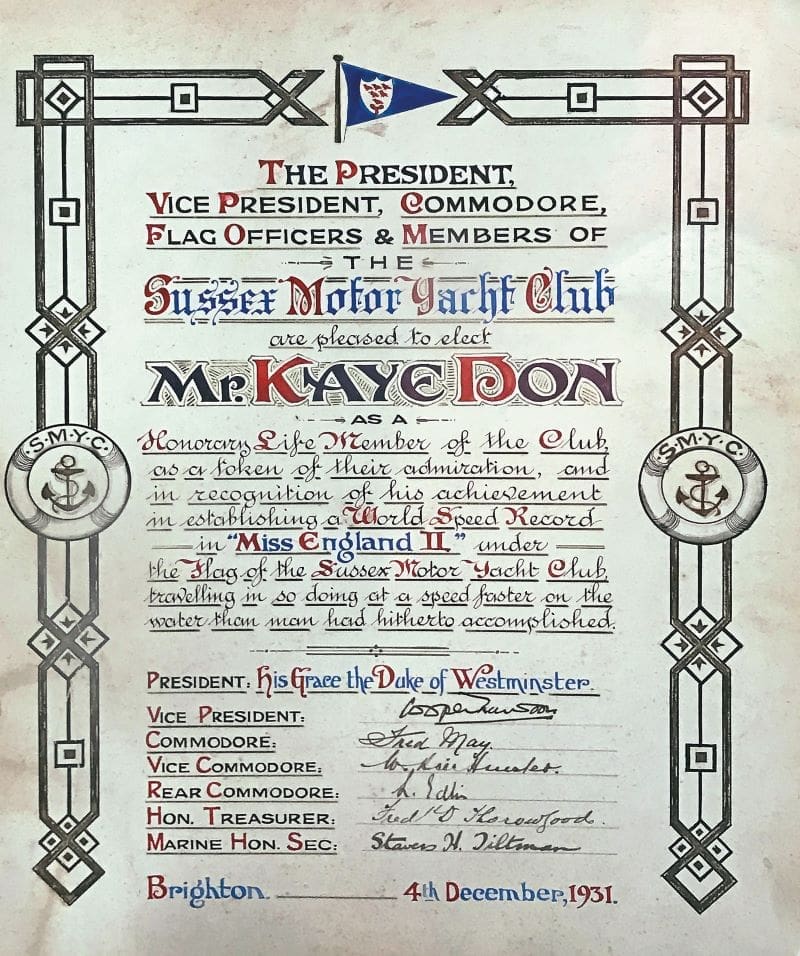 THE PRESIDENT,
VICE PRESIDENT, COMMODORE,
FLAG OFFICERS & MEMBERS OF
THE
Sussex Motor Yacht Club
are pleased to elect
MR. KAYE DON
AS A
Honorary Life Member of the Club,
as a token of their admiration, and
in recognition of his achievement
in establishing a World Speed Record
in "Miss England II." under
the Flag of the Sussex Motor Yacht Club,
travelling in so doing at a speed faster on the
water than man had hitherto accomplished.
S.M.Y.C.
S.M.Y.C.
PRESIDENT: His Grace the Duke of Westminster.
VICE PRESIDENT:
COMMODORE: Fred May.
VICE COMMODORE:
REAR COMMODORE:
HON. TREASURER: Fred D Thorowgood.
MARINE HON. SEC: Stavers H. Tiltman
Brighton 4th December, 1931.